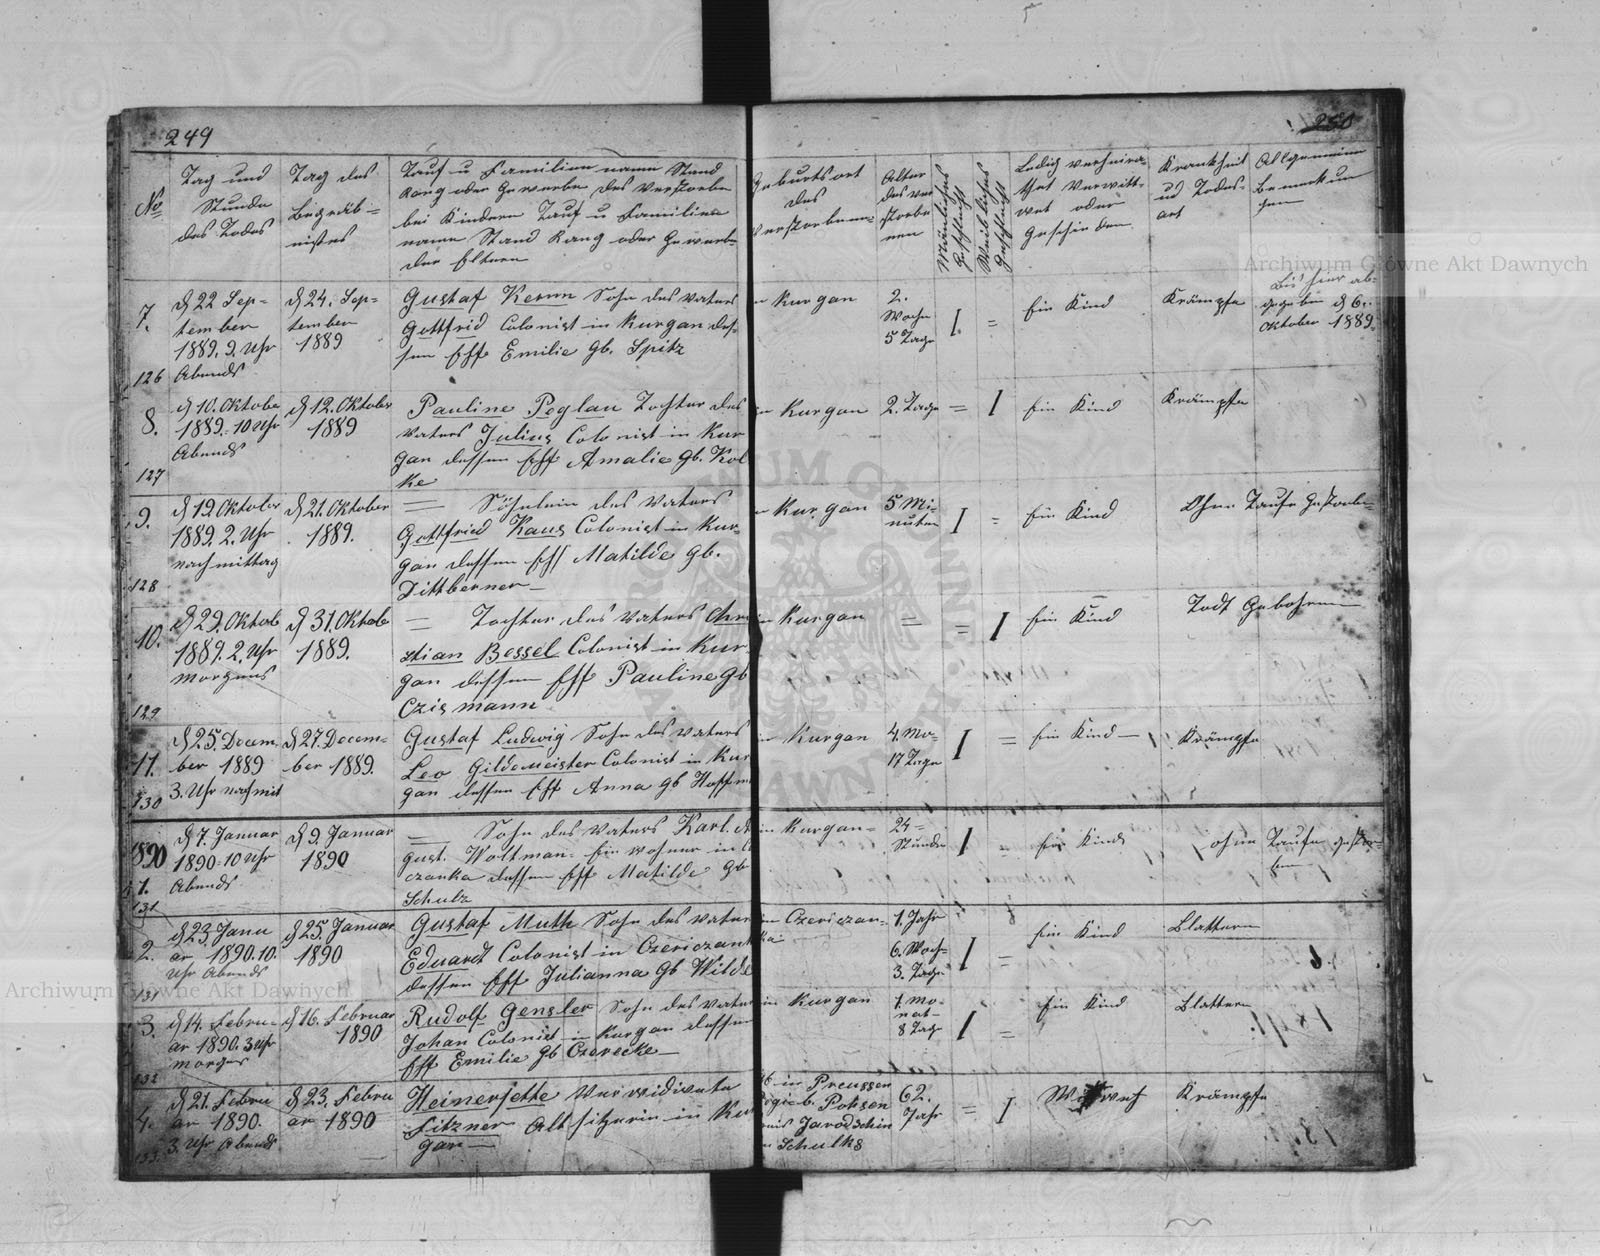 249
250
No
Tag und
Stunde
des Todes
Tag des
Begräb=
nisses
Tauf u Familien name Stand
Rang oder Gewerbe des Verstorbe
bei Kindern Tauf u Familien
name Stand Rang oder Gewerbe
der Eltern
Geburtsort
des
Verstorbenen
Alter
des Ver
storbe
nen
Männliches
Geschlecht
Weibliches
Geschlecht
Ledig verheira=
thet Verwitt=
wet oder
Geschieden
Krankheit
ud Todes=
art
Allgemeine
Bemerkun
gen
7.
126
d 22 Sep=
tember
1889. 9. Uhr
Abends
d 24. Sep=
tember
1889
Gustaf Kernn Sohn des Vaters
Gottfrid Colonist in Kurgan des=
sen Ehf Emilie gb. Spitz
in Kurgan
2.
Woche
5 Tage
I.
=
Ein Kind
Krämpfe
Bis hier ab=
gegeben d 6.
Oktober 1889.
8.
127
d 10. Oktobe
1889.= 10 Uhr
Abends
d 12. Oktober
1889
Pauline Peglau Tochter des
Vaters Julius Colonist in Kur
gan dessen Ehf Amalie gb. Kol
ke
in Kurgan
2. Tage
=
I
Ein Kind
Krämpfe
9.
128
d 19. Oktober
1889. 2. Uhr
nachmittag
d 21. Oktober
1889.
— Söhnlein des Vaters
Gottfried Kaus Colonist in Kur=
gan dessen Ehf Matilde gb.
Dittberner—
in Kurgan
5 Mi=
nuten
I
=
Ein Kind
Ohne Taufe Gestorbe=
10.
129
d 29. Oktob
1889. 2. Uhr
morgens
d 31. Oktob
1889.
— Tochter des Vaters Chri
stian Bessel Colonist in Kur=
gan dessen Ehf Pauline gb
Czismann
in Kurgan
=
=
I
Ein Kind
Todt Gebohren
11.
130
d 25. Decem=
ber 1889
3. Uhr nachmit
d 27. Decem=
ber 1889.
Gustaf Ludwig Sohn des Vaters
Leo Gildemeister Colonist in Kur
gan dessen Ehf Anna gb Hoffm
in Kurgan
4. Mo=
17 Tage
I
=
Ein Kind—
Krämpfe
1890
1.
131
d 7. Januar
1890= 10 Uhr
Abends
d 9. Januar
1890
— Sohn des Vaters Karl. A
gust. Woltman= Einwohner in
czanka dessen Ehf Matilde gb
Schulz
in Kurgan=
24=
Stunde
I
=
Ein Kind
ohne Taufe gestor=
ben
2.
131
d 23. Janu
ar 1890. 10.
Uhr Abends
d 25. Januar
1890
Gustaf Muth Sohn des Vater
Eduardt Colonist in Czericzan
dessen Ehf Julianna gb Wilde
in Czericzan=
ka
1. Jahr
6. Woch=
3. Tage
I
=
Ein Kind
Blattern
3.
132
d 14. Febru=
ar 1890. 3 Uhr
Morges
d 16. Februar
1890
Rudolf Gensler Sohn des Vater
Johan Colonist in Kurgan dessen
Ehf Emilie gb Czerecke—
in Kurgan
1. Mo=
nat=
8 Tage
I
=
Ein Kind
Blattern
4.
133.
d 21. Febru
ar 1890.
3. Uhr Abends
d 23. Febru
ar 1890
Heineriette Verwidivete
Fitzner Altsitzerin in Kur
gan—
in Preussen
Regieb. Pohsen
Jarodschin
Schulks
62.
Jahr
=
I
Wittweh
Krämpfe
Archiwum Główne Akt Dawnych
Archiwum Główne Akt Dawnych
ARCHIWUM GŁÓWNE AKT DAWNYCH